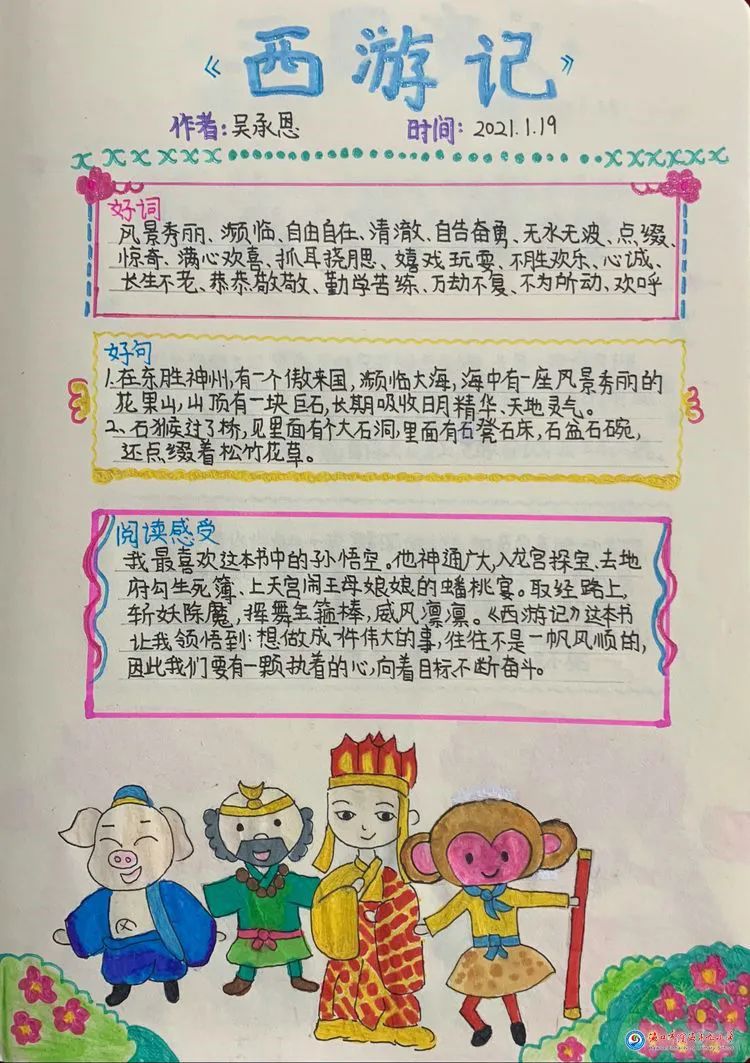 《西游记》
作者：吴承恩 时间：2021.1.19
好词
风景秀丽、濒临、自由自在、清澈、自告奋勇、无水无波、点缀、
惊奇、满心欢喜、抓耳挠腮、嬉戏玩耍、不胜欢乐、心诚、
长生不老、恭恭敬敬、勤学苦练、万劫不复、不为所动、欢呼
好句
1.在东胜神州,有一个傲来国,濒临大海,海中有一座风景秀丽的
花果山,山顶有一块巨石,长期吸收日月精华、天地灵气。
2、石猴过了桥,见里面有个大石洞,里面有石凳石床,石盆石碗,
还点缀着松竹花草。
阅读感受
我最喜欢这本书中的孙悟空。他神通广大,入龙宫探宝、去地
府勾生死簿、上天宫闹王母娘娘的蟠桃宴。取经路上,
斩妖除魔,挥舞金箍棒,威风凛凛。《西游记》这本书
让我领悟到:想做成一件伟大的事,往往不是一帆风顺的,
因此我们要有一颗执着的心,向着目标不断奋斗。